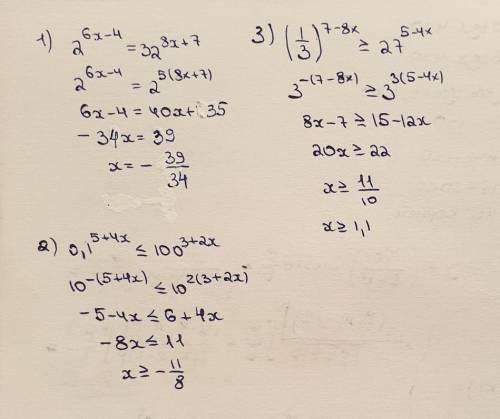 1) 2^{6x-4} = 32^{8x+7}
2^{6x-4} = 2^{5(8x+7)}
6x-4 = 40x+35
-34x = 39
x = - 39/34
2) 0,1^{5+4x} ≤ 100^{3+2x}
10^{-(5+4x)} ≤ 10^{2(3+2x)}
-5-4x ≤ 6+4x
-8x ≤ 11
x ≥ - 11/8
3) (1/3)^{7-8x} ≥ 27^{5-4x}
3^{-(7-8x)} ≥ 3^{3(5-4x)}
8x-7 ≥ 15-12x
20x ≥ 22
x ≥ 11/10
x ≥ 1,1